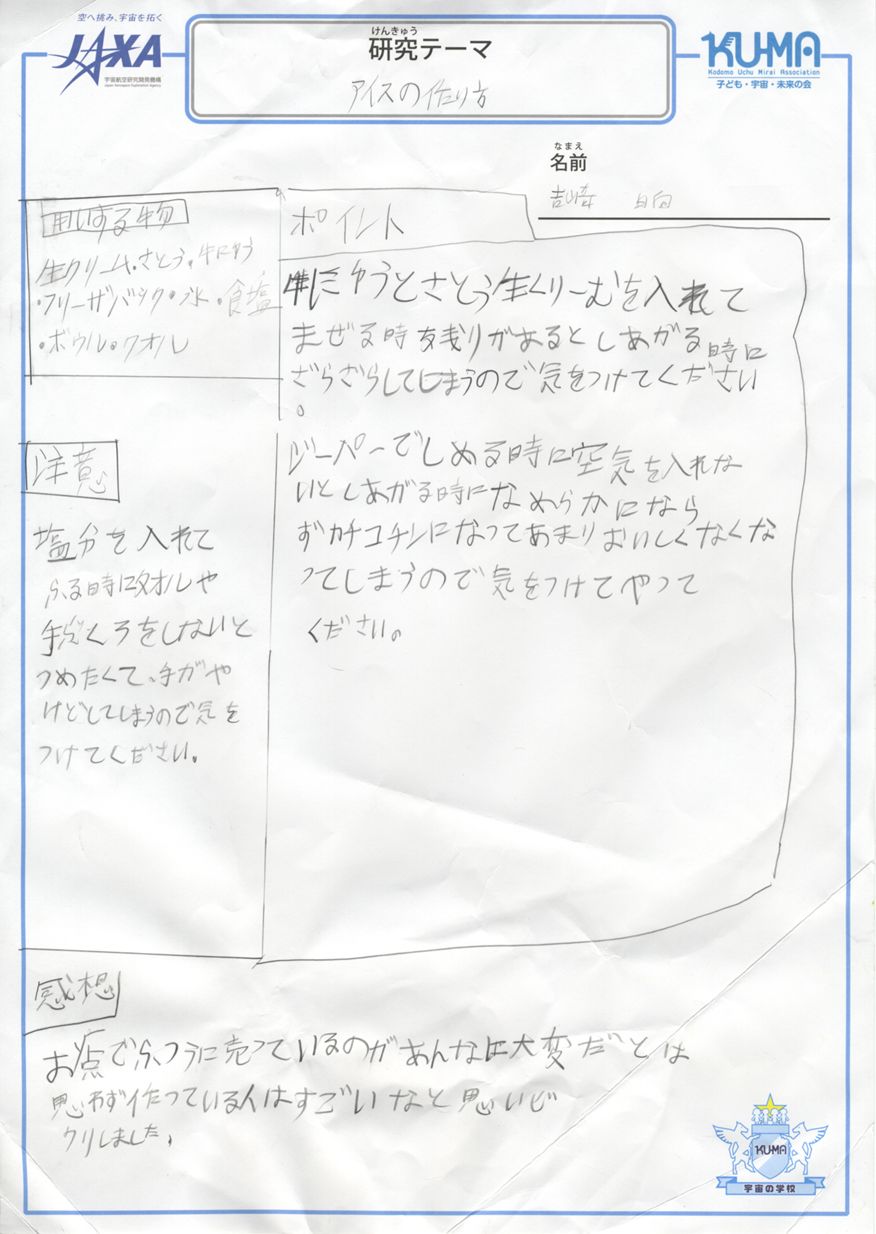 空へ挑み、宇宙を拓く
JAXA
宇宙航空研究開発機構
Japan Aerospace Exploration Agency
けんきゅう
研究テーマ
アイスの作り方
KU-MA
Kodomo Uchu Mirai Association
子ども・宇宙・未来の会
なまえ
名前
吉崎 日向
用いする物
生クリーム・さとう・牛にゅう
・フリーザバック・氷・食塩
・ボウル・タオル
ポイント
牛にゅうとさとう生くりーむを入れて
まぜる時残りがあるとしあがる時に
ざらざらしてしまうので気をつけてください
。
ジーパーでしめる時に空気を入れな
いとしあがる時になめらかになら
ずカチコチンになってあまりおいしくなくな
ってしまうので気をつけてやって
ください。
注意
塩分を入れて
ふる時にタオルや
手ぶくろをしないと
つめたくて、手がや
けどしてしまうので気を
つけてください。
感想
お店でふつうに売っているのがあんなに大変だとは
思わず作っている人はすごいなと思いビ
クリしました。
KU-MA
宇宙の学校